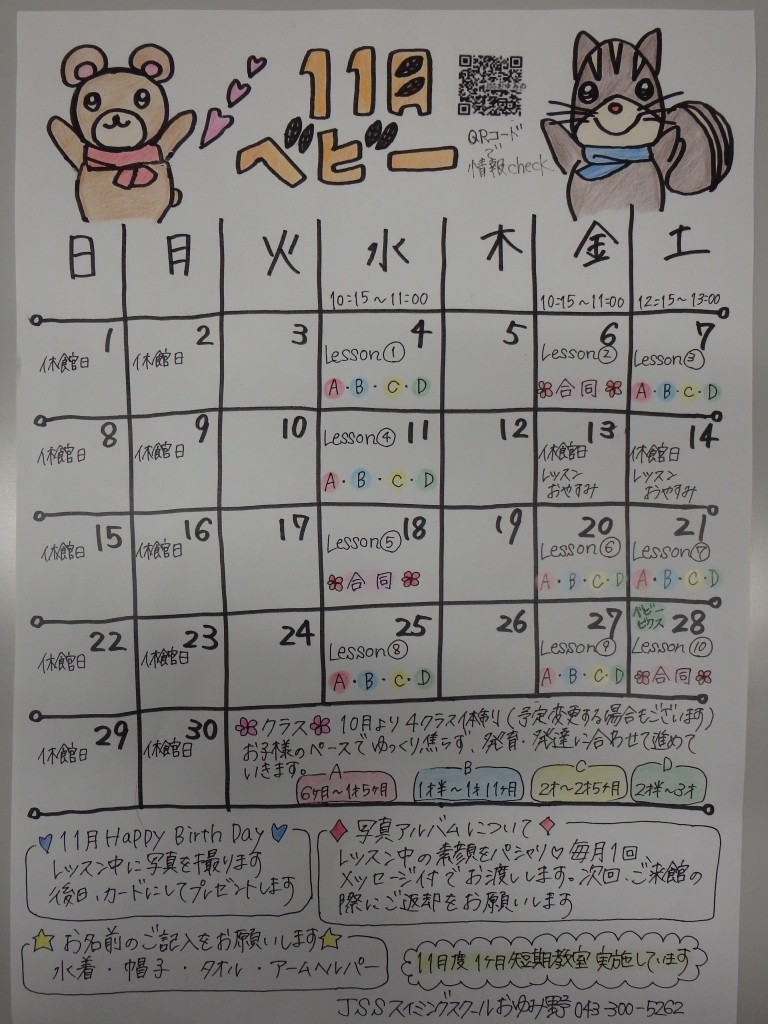 11月
ベビー
QRコード
で
情報check
日 月 火 水 木 金 土
10:15～11:00 10:15～11:00 12:15～13:00
1 2 3 4 5 6 7
休館日 休館日 Lesson① Lesson② Lesson③
A・B・C・D 合同 A・B・C・D
8 9 10 11 12 13 14
休館日 休館日 Lesson④ 休館日 休館日
レッスン レッスン
おやすみ おやすみ
A・B・C・D
15 16 17 18 19 20 21
休館日 休館日 Lesson⑤ Lesson⑥ Lesson⑦
合同 A・B・C・D A・B・C・D
ベビー
ビクス
22 23 24 25 26 27 28
休館日 休館日 Lesson⑧ Lesson⑨ Lesson⑩
A・B・C・D A・B・C・D 合同
29 30
休館日 休館日
クラス 10月より4クラス体制(予定変更する場合もございます)
お子様のペースでゆっくり焦らず、発育・発達に合わせて進めて
いきます。
A B C D
6ヶ月～1才5ヶ月 1才半～1才11ヶ月 2才～2才5ヶ月 2才半～3才
11月Happy Birth Day
レッスン中に写真を撮ります
後日、カードにしてプレゼントします
写真アルバムについて
レッスン中の素顔をパシャリ♡毎月1回
メッセージ付でお渡しします。次回、ご来館の
際にご返却をお願いします
お名前のご記入をお願いします
水着・帽子・タオル・アームヘルパー
11月度1ヶ月短期教室実施しています
JSSスイミングスクールおゆみ野 043-300-5262